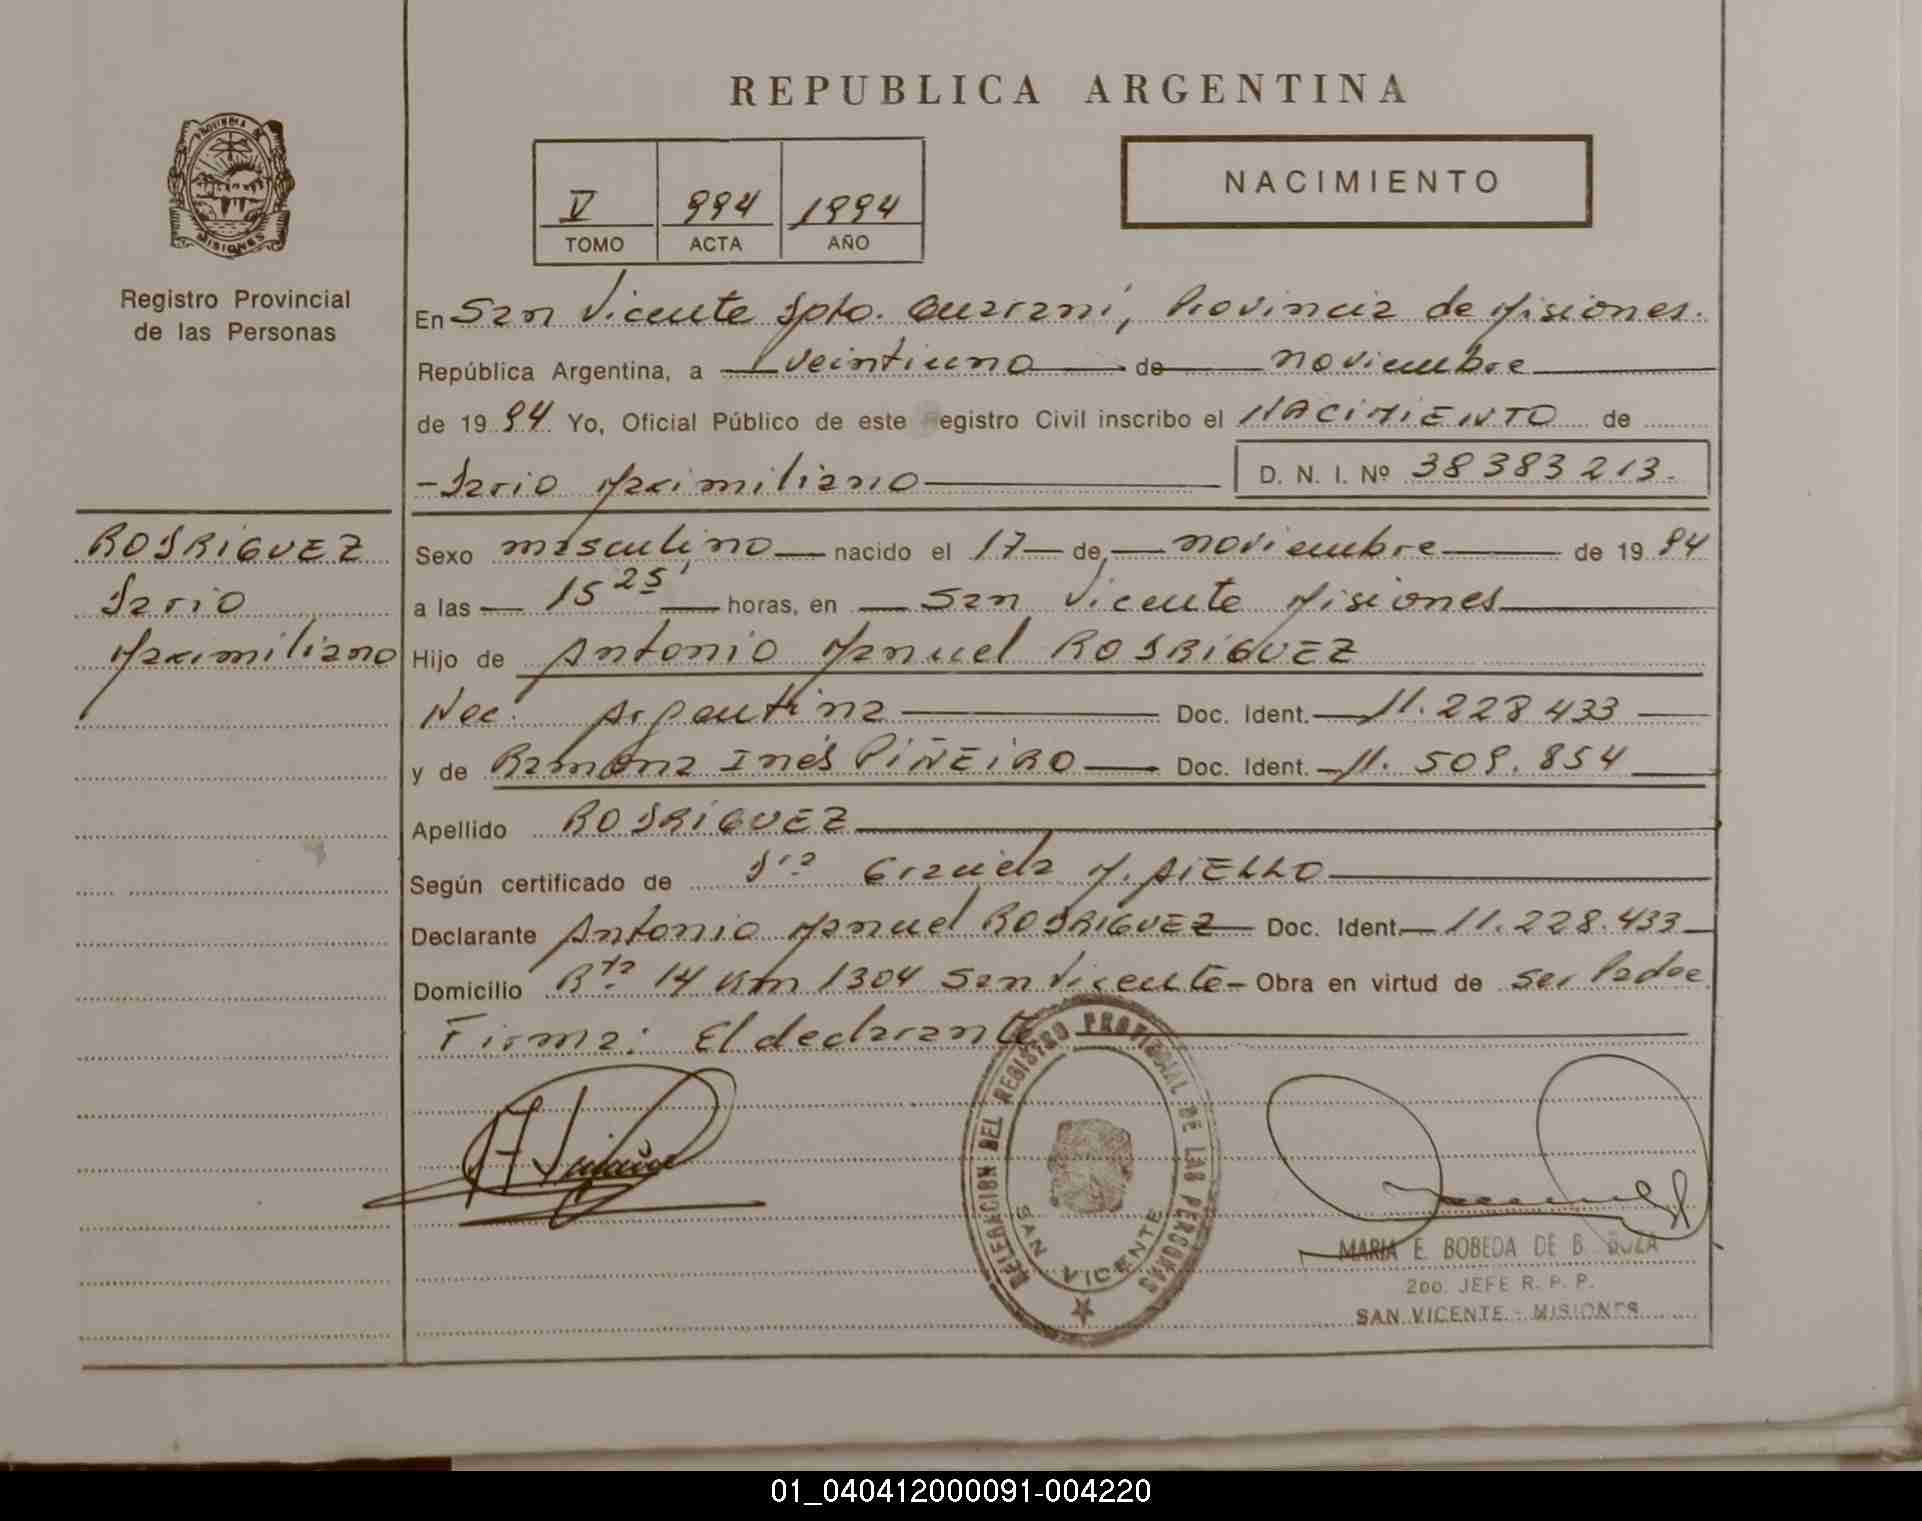 REPUBLICA ARGENTINA
PROVINCIA DE
MISIONES
Registro Provincial
de las Personas
V 994 1994
TOMO ACTA AÑO
NACIMIENTO
En San Vicente Dpto. Guaraní, Provincia de Misiones.
República Argentina, a veintiuno de noviembre
de 1994 Yo, Oficial Público de este Registro Civil inscribo el NACIMIENTO de
-Dario Maximiliano D. N. I. Nº 38383213.
RODRIGUEZ
Dario
Maximiliano
Sexo masculino nacido el 17 de noviembre de 1994
a las 15 25' horas, en San Vicente Misiones
Hijo de Antonio Manuel RODRIGUEZ
Nac. Argentina Doc. Ident. 11.228 433
y de Ramona Inés PIÑEIRO Doc. Ident. 11. 509. 854
Apellido RODRIGUEZ
Según certificado de Dra Graciela M. AIELLO
Declarante Antonio Manuel RODRIGUEZ Doc. Ident. 11.228.433
Domicilio Rta 14 Km 1304 San Vicente- Obra en virtud de ser Padre.
Firma: El declarante
DELEGACION DEL REGISTRO PROVINCIAL DE LAS PERSONAS
SAN VICENTE
MARIA E. BOBEDA DE B
2DO. JEFE R. P. P.
SAN VICENTE - MISIONES
01_040412000091-004220